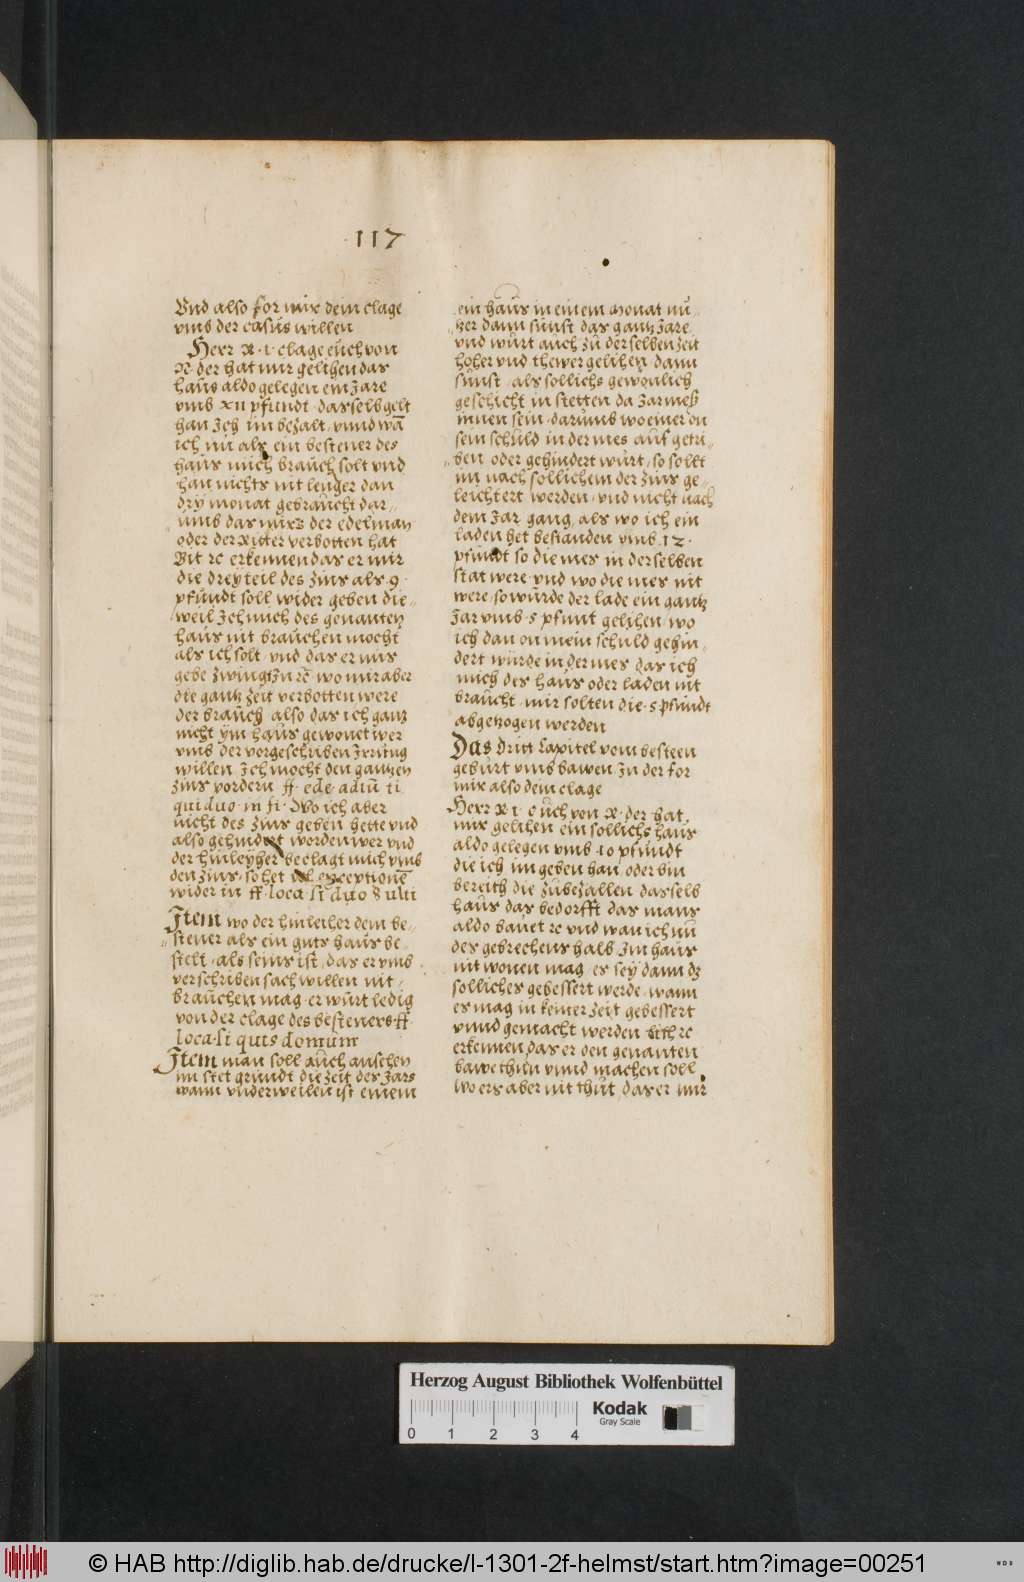 117
Vnd also for mir dem clage
vmb der casus willen
Herr R · i · clage euch von
R der hat mir gelihen das
haus aldo gelegen ein Jare
vmb xii pfundt · dasselb gelt
han Jch im bezalt / vnnd wā
ich nü als ein besteuer des
haus mich brauch solt vnd
han nichts nit lenger dan
dry monat gebraucht dar=
umb das mirs der edelman
oder der ritter verbotten hat
Bit rc erkennen das er mir
die dreyteil des zins als 9 ·
pfundt soll wider geben die=
weil Jch mich des genanten
haus nit brauchen mocht
als ich solt vnd das er mir
gebe
die gantz zeit verbotten were
der brauch also das ich gantz
nicht ym haus gewonet wer
vmb der vorgeschriben Jrrung
willen Jch mocht den gantzen
zins vordern ff · ede · adiū ti
qui duo · in fi · Wo ich aber
nicht des zins geben hette vnd
also gehindert worden wer vnd
der hinleyher beclagt mich vmb
den zins · so het exceptionē
wider in ff · loca · si duo § ulti
Jtem wo der hinleiher dem be=
steuer als ein guts haus be=
stelt · als seins ist / das er vmb
verschriben sach willen nit
brauchen mag · er würt ledig
von der clage des besteuers ff ·
loca · si quis domum
Jtem man soll auch ansehen
im stet grundt die zeit des Jars
wann vnderweilen ist einem
ein haus in einem monat nü=
tzer dann sunst das gantz Jare
vnd würt auch zu derselben zeit
höher vnd thewer gelihen dann
sunst / als sollichs gewonlich
geschicht in stetten da Jarmeß
innen sein · darumb wo einer on
sein schuld in der mes auß getri=
ben oder gehindert würt / so sollt
im nach sollichem der zins ge=
leichtert werden · vnd nicht nach
dem Jar gang als wo ich ein
laden het bestanden vmb · 12 ·
pfundt so die mes in derselben
stat were · vnd wo die mes nit
were · so würde der lade ein gantz
Jar vmb · 5 pfunt gelihen / wo
ich dan on mein schuld gehin=
dert würde in der mes das ich
mich des haus oder laden nit
braucht · mir solten die · 5 pfundt
abgezogen werden
Das dritt Capitel vom besteen
gebürt vmb bawen zu der for
mir also dem clage
Herr R · i · euch von R · der hat
mir gelihen ein sollichs haus
aldo gelegen vmb 10 pfundt
die ich im geben han oder bin
bereith die zübezallen dasselb
haus das bedorfft das mans
aldo bauet rc vnd wan ich nü
des gebrechens halb Jm haus
nit wonen mag · es sey dann dz
sollichs gebessert werde · wann
es mag in keiner zeit gebessert
vnnd gemacht werden bith rc
erkennen das er den genanten
bawe thün vnnd machen soll
wo ers aber nit thüt das er mir
Herzog August Bibliothek Wolfenbüttel
Kodak
Gray Scale
0 1 2 3 4
© HAB http://diglib.hab.de/drucke/l-1301-2f-helmst/start.htm?image=00251